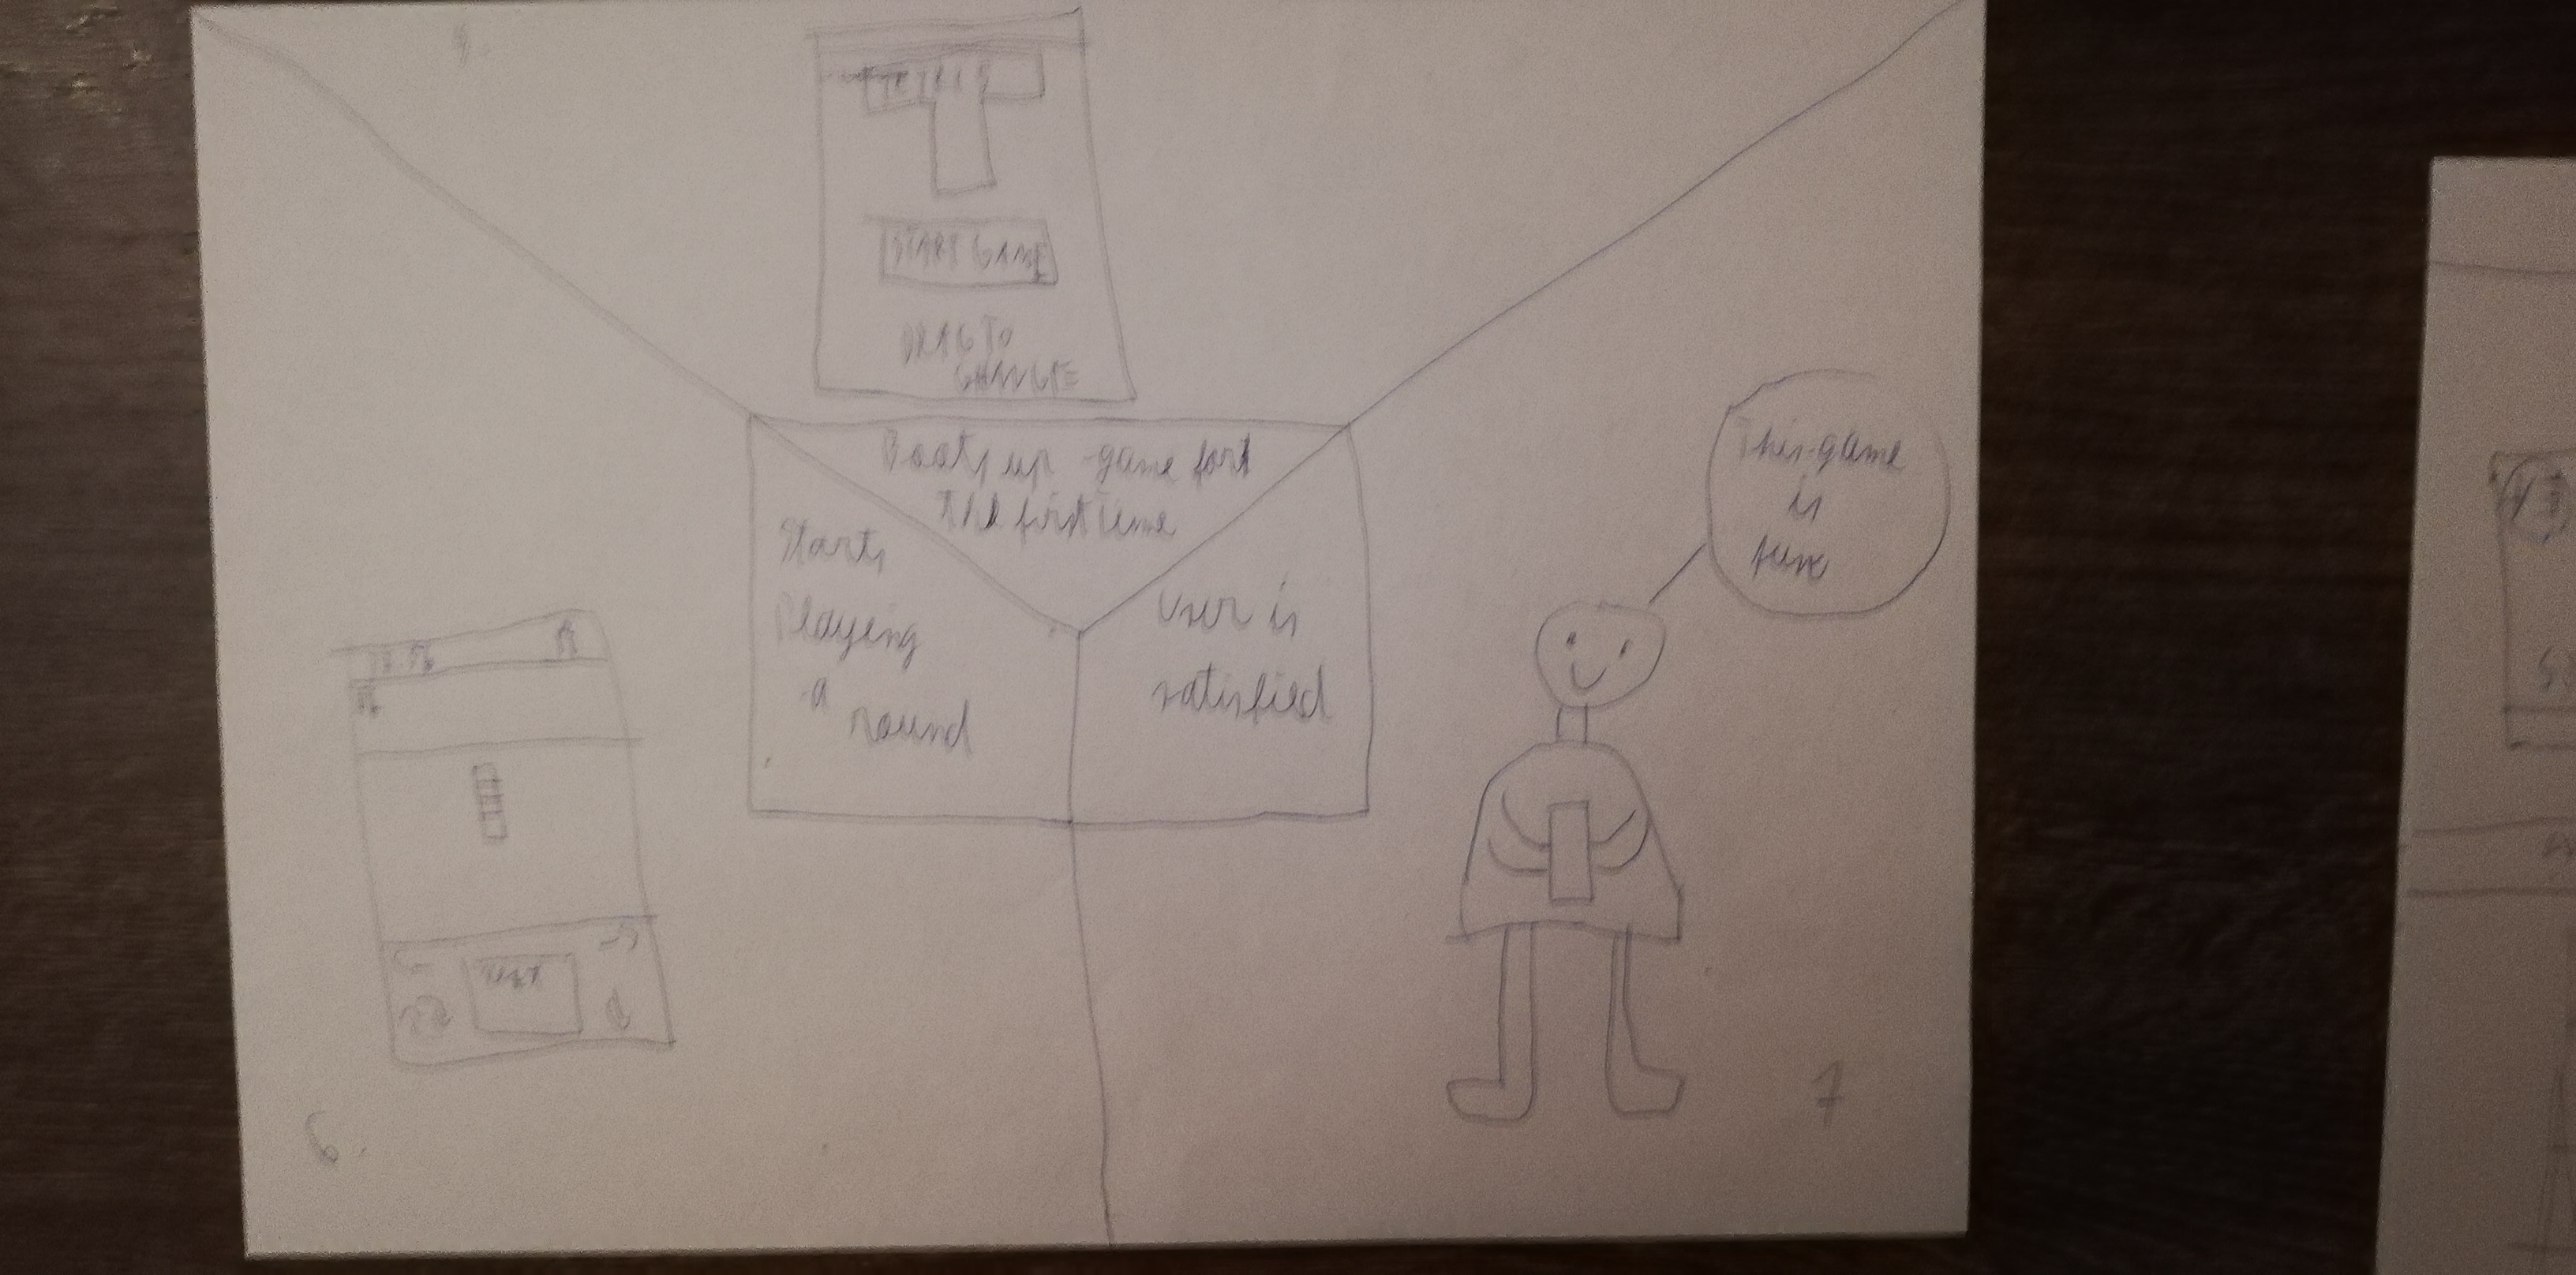 TETRIS
START GAME
DRAG TO
CHANGE
Boots up game fort
the first time
Starts
Playing
a
round
User is
satisfied
This game
is
fun
6.
7